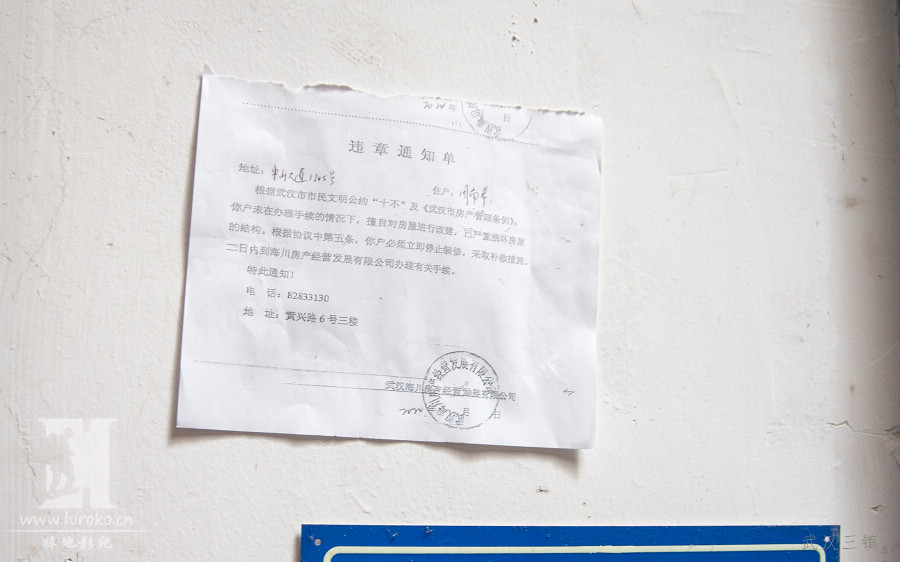 年 日
违章通知单
地址：中山大道1205号 住户：
根据武汉市市民文明公约“十不”及《武汉市房产管理条例》，
你户未在办理手续的情况下，擅自对房屋进行改建，已严重损坏房屋
的结构。根据协议中第五条，你户必须立即停止装修，采取补救措施，
二日内到海川房产经营发展有限公司办理有关手续。
特此通知！
电 话：82833130
地 址：黄兴路6号三楼
武汉海川房产经营发展有限公司
月 日
www.hiroko.cn
武汉三镇